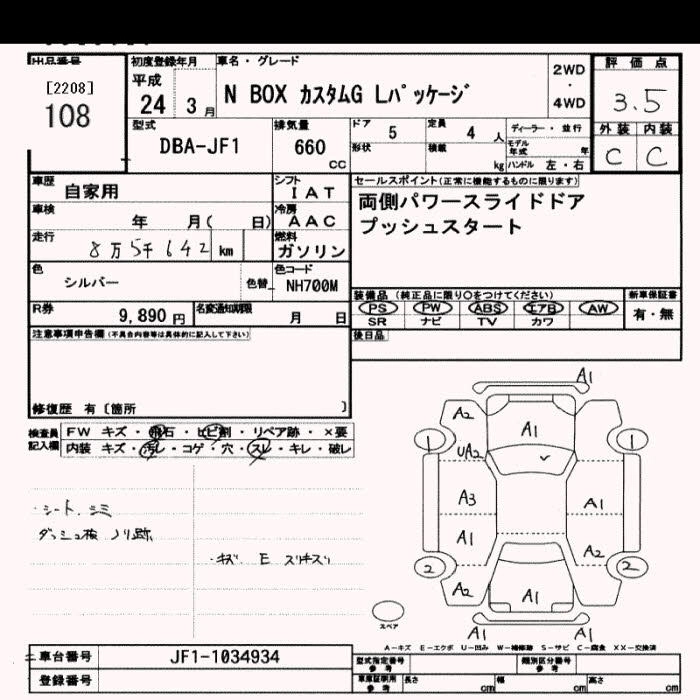 出品番号
[2208]
108
初度登録年月
平成
24 3月
車名・グレード
N BOX カスタムG Lパッケージ
2WD
・
4WD
評価点
3.5
外装 内装
C C
型式
DBA-JF1
排気量
660
cc
ドア 5
定員 4人
ディーラー・並行
形状
積載 kg
モデル年式 年
ハンドル 左・右
車歴 自家用
シフト IAT
車検 年 月( 日)
冷房 AAC
走行 8万5千642 km
燃料 ガソリン
色 シルバー
色替
色コード NH700M
R券 9,890円
名変通知期限 月 日
セールスポイント(正常に機能するものに限ります)
両側パワースライドドア
プッシュスタート
装備品 (純正品に限り〇をつけてください)
新車保証書
PS PW ABS エアB AW
SR ナビ TV カワ
有・無
後日品
注意事項申告欄 (不具合内容等は具体的に記入して下さい)
修復歴 有〔箇所 〕
検査員記入欄
FW キズ・飛石・ヒビ割・リペア跡・×要
内装 キズ・汚レ・コゲ・穴・スレ・キレ・破レ
・シート シミ
ダッシュ板 ノリ跡
・キズ E スリキズリ
A1
A2
A1
1 1
UA2
A3
A1
A1
A2
2 2
A2
A1
A1 A1
スペア
A-キズ E-エクボ U-凹み W-補修跡 S-サビ C-腐食 XX-交換済
車台番号 JF1-1034934
登録番号
型式指定番号
参考
類別区分番号
参考
車庫証明用
参考
長さ cm
幅 cm
高さ cm